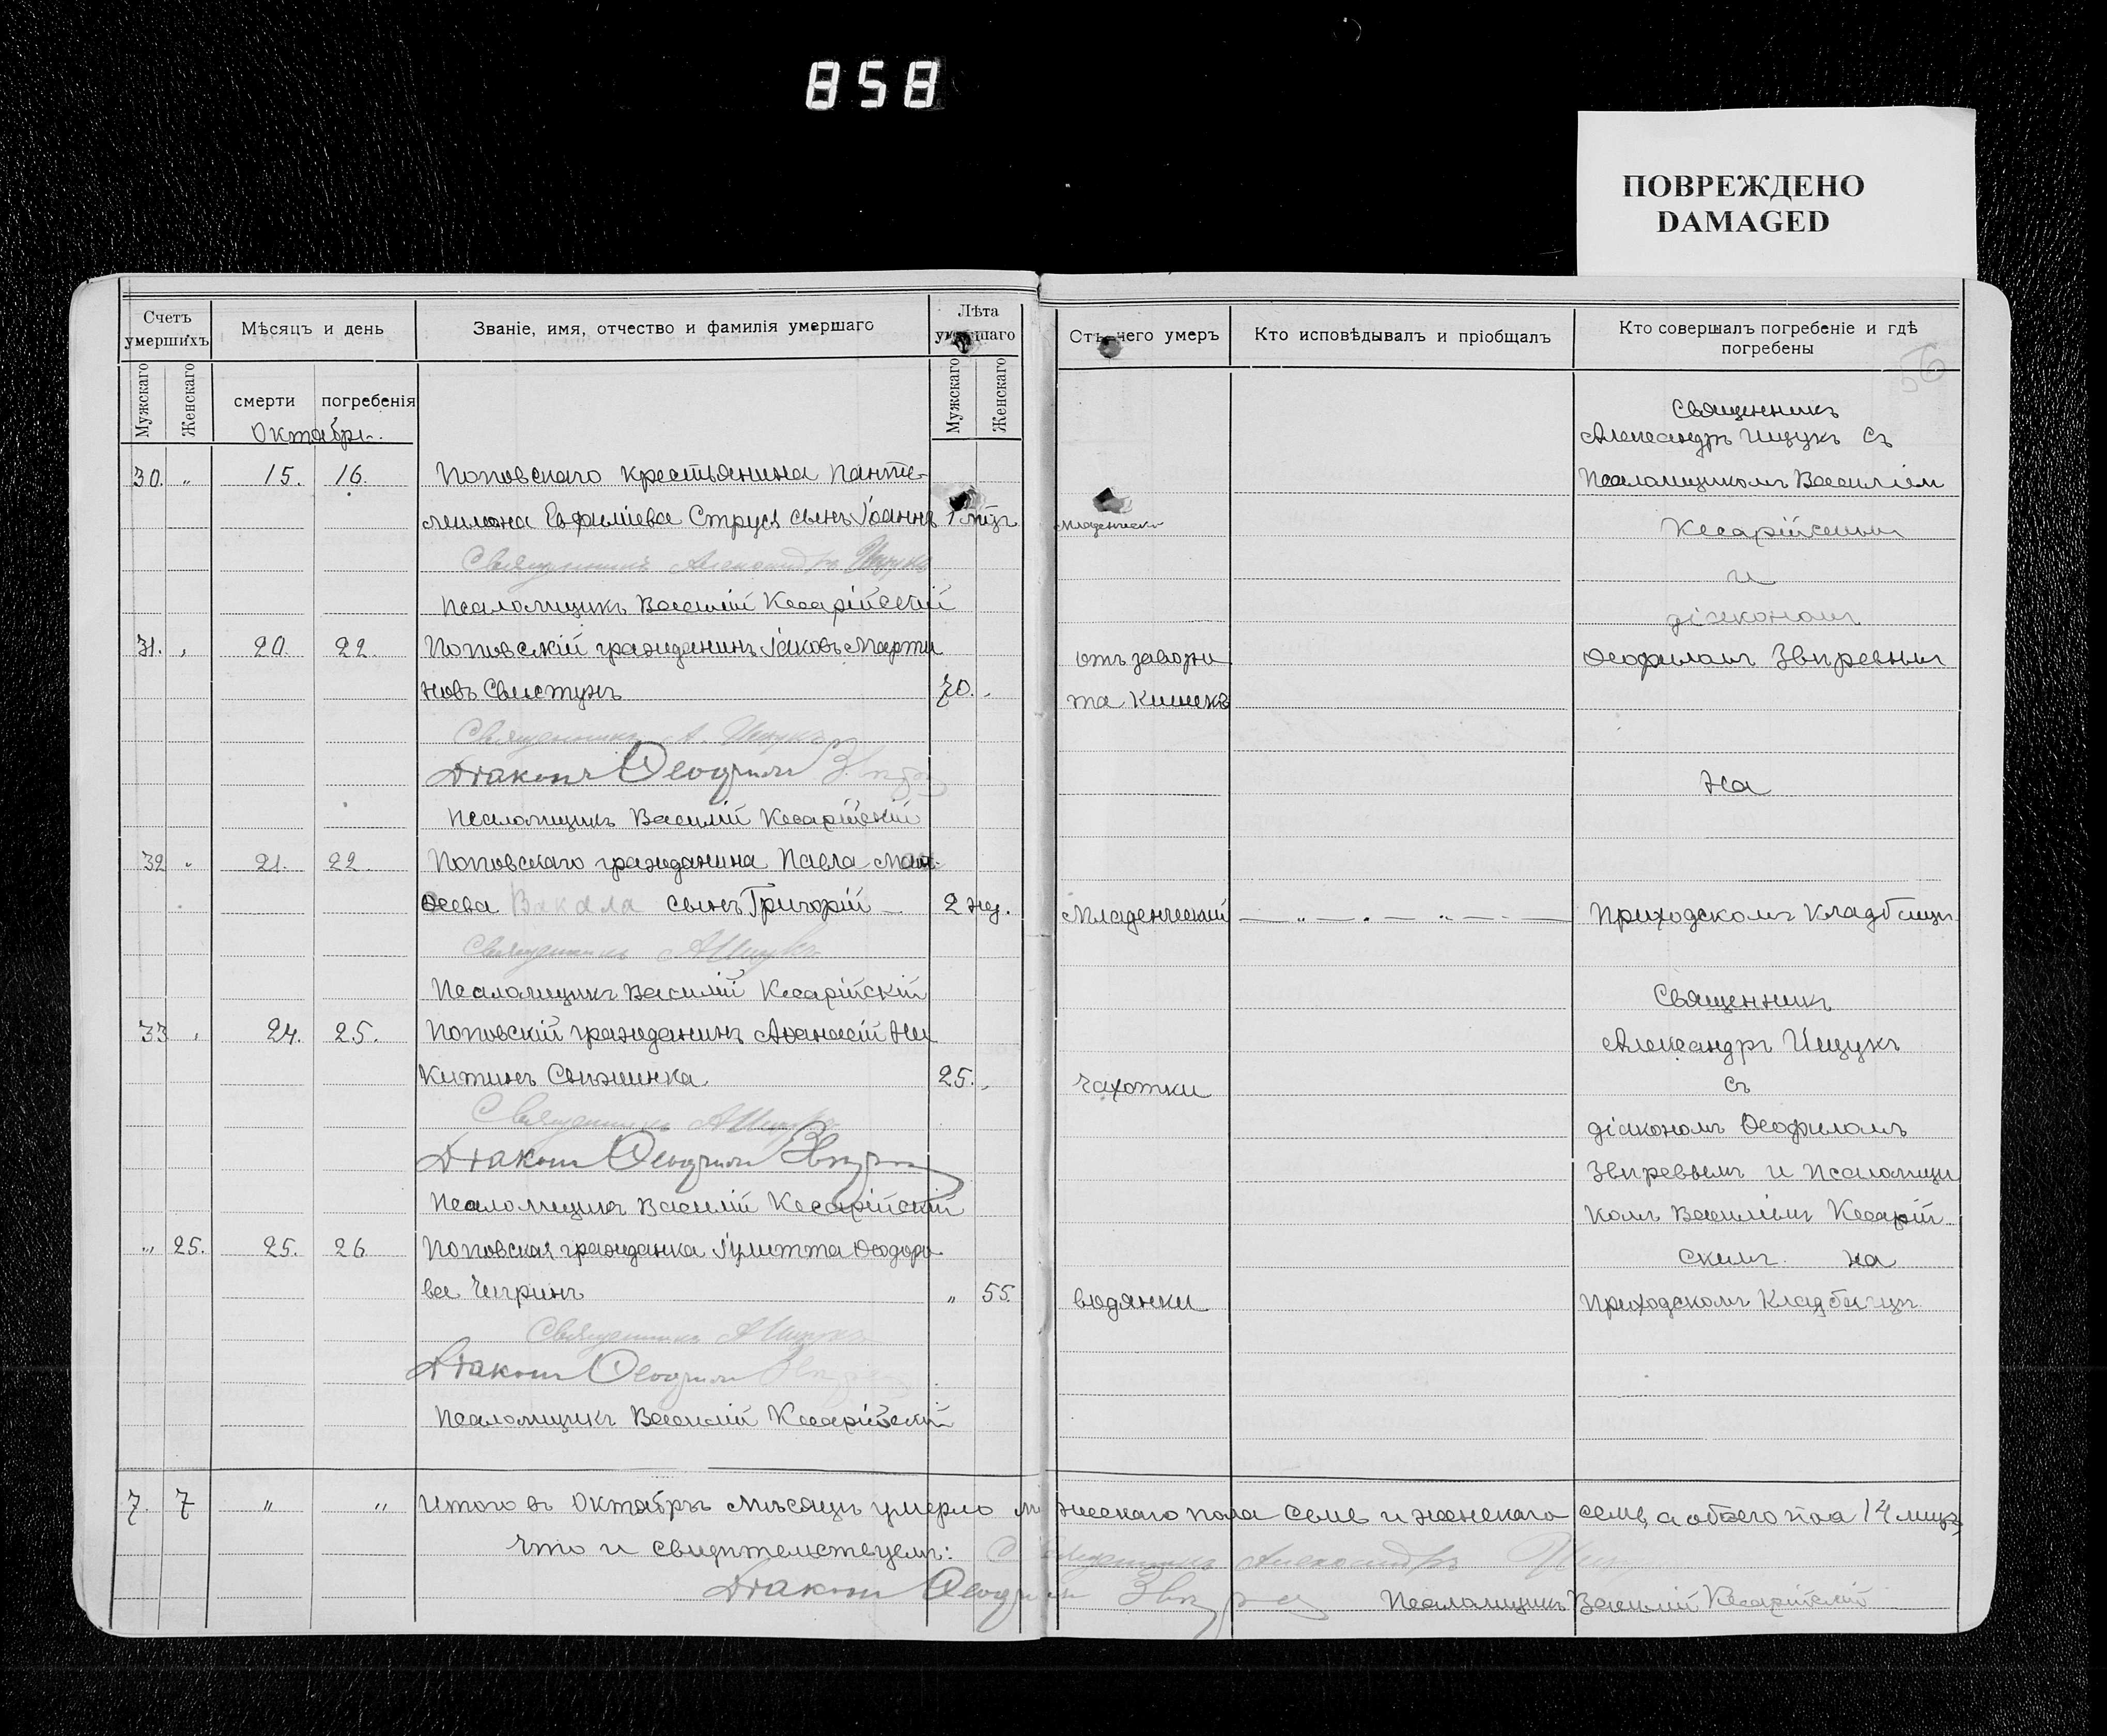 858
ПОВРЕЖДЕНО
DAMAGED
Счетъ умершихъ
Мѣсяцъ и день
Званіе, имя, отчество и фамилія умершаго
Лѣта умершаго
Отъ чего умеръ
Кто исповѣдывалъ и пріобщалъ
Кто совершалъ погребеніе и гдѣ погребены
Мужскаго
Женскаго
смерти
погребенія
Мужскаго
Женскаго
56
Октября.
Священникъ
Александръ Ищукъ съ
30. „ 15. 16. Поповскаго крестьянина Панте-
Псаломщикомъ Василіем
леимона Евфиміева Струся сынъ Іоаннъ 1 мѣц.
младенческ
Кесарійскимъ
Священникъ Александръ Ищукъ
и
Псаломщикъ Василій Кесарійскій
діакономъ
31. „ 20. 22. Поповскій гражданинъ Іаковъ Марти
отъ заворо
Ѳеофиломъ Звѣревымъ
новъ Свистунъ 70. „
та кишекъ
Священникъ А. Ищукъ
Діаконъ Ѳеофилъ Звѣревъ
на
Псаломщикъ Василій Кесарійскій
32 „ 21. 22. Поповскаго гражданина Павла Мат
Ѳеева Вакала сынъ Григорій 2 нед.
Младенческій
Приходскомъ кладбищѣ
Священникъ А Ищукъ
Псаломщикъ Василій Кесарійскій
Священникъ
33 „ 24. 25. Поповскій гражданинъ Аѳанасій Ни
Александръ Ищукъ
китинъ 25. „
чахотки
съ
Священникъ А Ищукъ
діакономъ Ѳеофиломъ
Діаконъ Ѳеофилъ Звѣревъ
Звѣревымъ и Псаломщи
Псаломщикъ Василій Кесарійскій
комъ Василіемъ Кесарій
„ 25. 25. 26 Поповская гражданка Іулитта Ѳеодоро
скимъ на
ва Чигринъ „ 55.
водянки
Приходскомъ кладбищѣ
Священникъ А Ищукъ
Діаконъ Ѳеофилъ Звѣревъ
Псаломщикъ Василій Кесарійскій
7. 7 „ „ Итого въ Октябрѣ мѣсяцѣ умерло мужескаго пола семь и женскаго семь, а обоего поа 14 лицъ,
Что и свидѣтельствуемъ: Священникъ Александръ Ищукъ
Діаконъ Ѳеофилъ Звѣревъ Псаломщикъ Василій Кесарійскій